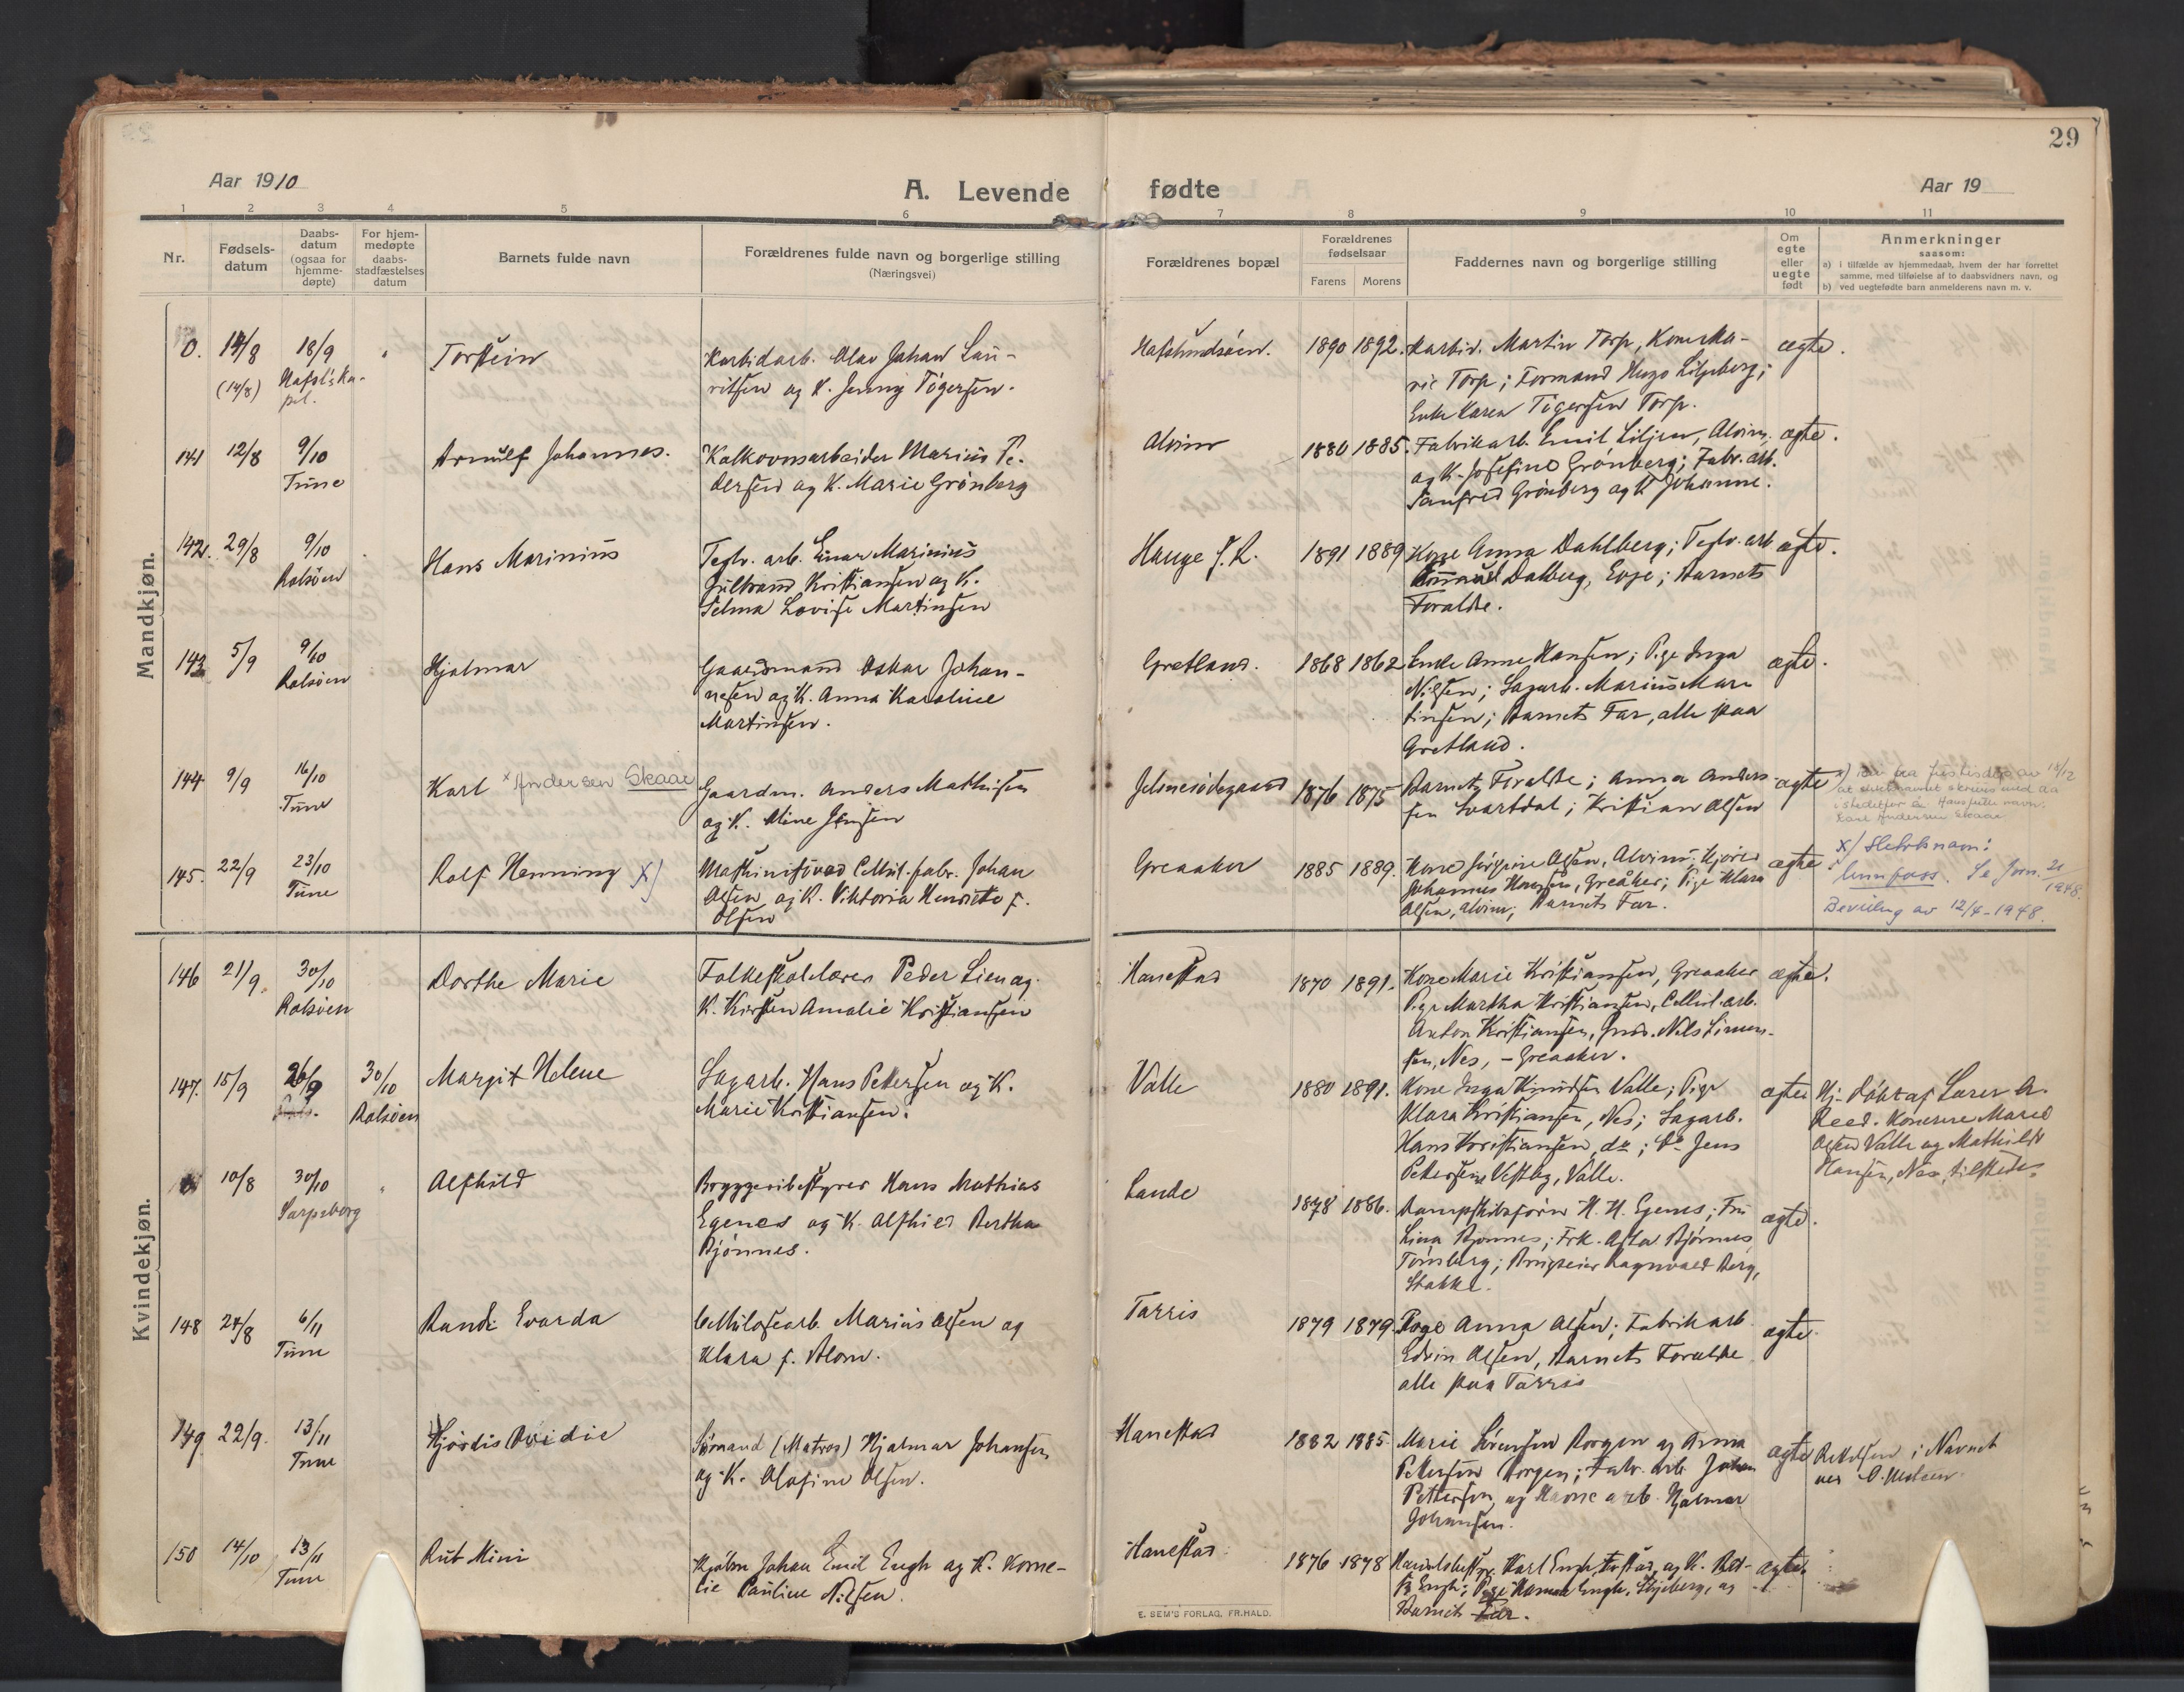 29
Aar 1910
A. Levende fødte
Aar 19
1 2 3 4 5 6 7 8 9 10 11
Nr.
Fødselsdatum
Daabsdatum (ogsaa for hjemmedøpte)
For hjemmedøpte daabsstadfæstelses datum
Barnets fulde navn
Forældrenes fulde navn og borgerlige stilling
(Næringsvei)
Forældrenes bopæl
Forældrenes fødselsaar
Farens Morens
Faddernes navn og borgerlige stilling
Om egte eller uegte født
Anmerkninger
saasom:
a) i tilfælde av hjemmedaab, hvem der har forrettet
samme, med tilføielse af to daabsvidners navn, og
b) ved uegtefødte barn anmelderens navn m. v.
Mandkjøn.
0. 14/8 18/9 Torstein Karbidarb. Olav Johan Lau-
(14/8) Hafsl's Ka-
pel.
ritsen og K. Jenny Tøgersen.
Hafslundsøen. 1890 1892. Karbid. Martin Torp, Kone Ma-
rie Torp; Formand Hugo Liljeberg;
Enke Karen Tøgersen Torp.
ægte.
141 12/8 9/10 Arnulf Johannes. Kalkovnsarbeider Marius Pe-
Tune
dersen og K. Marie Grønberg
Alvim 1880 1885. Fabrikarb. Emil Liljen, Alvim,
og K. Josefine Grønberg; Fabr. arb.
Grønberg og K Johanne.
ægte.
142. 29/8 9/10 Hans Marinius Teglv. arb. Einar Marinius
Rolsøen
Gulbrand Kristiansen og K.
Selma Lovise Martinsen
Hauge f. R. 1891 1889 Kone Anna Dahlberg; Teglv. arb
Dalberg, Evje; Barnets
Foraldre.
ægte.
143 5/9 9/10 Hjalmar Gaardmand Oskar Johan-
Rolsøen
nesen og K. Anna Karoline
Martinsen.
Gretland. 1868 1862 Enke Anne Hansen; Pige Inga
Nilsen; Sagarb. Marius Mar-
tinsen; Barnets Far, alle paa
Gretland.
ægte.
144 9/9 16/10 Karl x Andersen Skaar Gaardm. Anders Mathisen
Tune
og K. Mine Jensen
Jelsnesødegaard 1876 1875 Barnets Foraldre; Anna Ander-
sen Svartdal; Kristian Olsen
ægte
istedetfor å. Hans fulle navn:
Karl Andersen Skaar
145. 22/9 23/10 Rolf Henning x) Maskinist ved Cellul. fabr. Johan
Tune
Olsen og K. Viktoria Henriette f.
Olsen
Greaaker 1885 1889. Kone Jørgine Olsen, Alvim; Kjører
Johannes Hansen, Greåker; Pige Klara
Olsen, Alvim; Barnets Far.
ægte.
x) Slektsnavn:
Se Jorn. 21/1948.
Bevilling av 12/4-1948.
Kvindekjøn.
146 21/9. 30/10 Dorthe Marie Folkeskolelærer Peder Lien og
Rolsøen
K. Kirsten Amalie Kristiansen
Hanestad 1870 1891. Kone Marie Kristiansen, Greaaker
Pige Martha Kristiansen, Cellul. arb.
Anton Kristiansen, Nils Simen-
sen, Nes, - Greaaker.
ægte.
147. 15/9 26/9 30/10 Margit Helene Sagarb. Hans Pettersen og K.
Rolsøen
Marie Kristiansen.
Valle 1880 1891. Kone Inga Knudsen Valle; Pige
Klara Kristiansen, Nes; Sagarb.
Hans Kristiansen, do; Do Jens
Pettersen Vestby, Valle.
ægte
Hj. døbt af Lærer A.
Reed. Konerne Marie
Olsen Valle og Mathilde
Hansen, Nes, tilstede.
10/8 30/10 " Alfhild Bryggeribestyrer Hans Mathias
Sarpsborg
Egenes og K. Alfhild Bertha
Bjønnes.
Lande 1878 1886. Dampskibsfører H. H. Egenes; Fru
Lina Bjønnes; Frk. Asta Bjønnes
Tønsberg; Brugseier Ragnvald Berg,
Stokke.
ægte.
148 24/8 6/11 Randi Evarda Cellulosearb. Marius Olsen og
Tune
Klara f. Blom.
Tarris 1879 1879 Pige Anna Olsen; Fabrikarb
Edvin Olsen, Barnets Foraldre
alle paa Tarris
ægte.
149 22/9. 13/11 Hjørdis Ovidie Sømand (Matros) Hjalmar Johansen
Tune
og K. Olafine Olsen.
Hanestad 1882 1885. Marie Sørensen Borgen og Anna
Pettersen Borgen; Fabr. arb Johan
Pettersen og Havne arb. Hjalmar
Johansen.
ægte
Rettelsen i Navnet
ved
150 14/10 13/11 Rut Mimi Johan Emil Engh og K. Korne-
Tune
lie Pauline Nilsen.
Hanestad. 1876 1878 Karl Engh, og K.
Engh; Pige Engh, Skjeberg, og
Barnets Far.
ægte.
E. SEM'S FORLAG, FR.HALD.